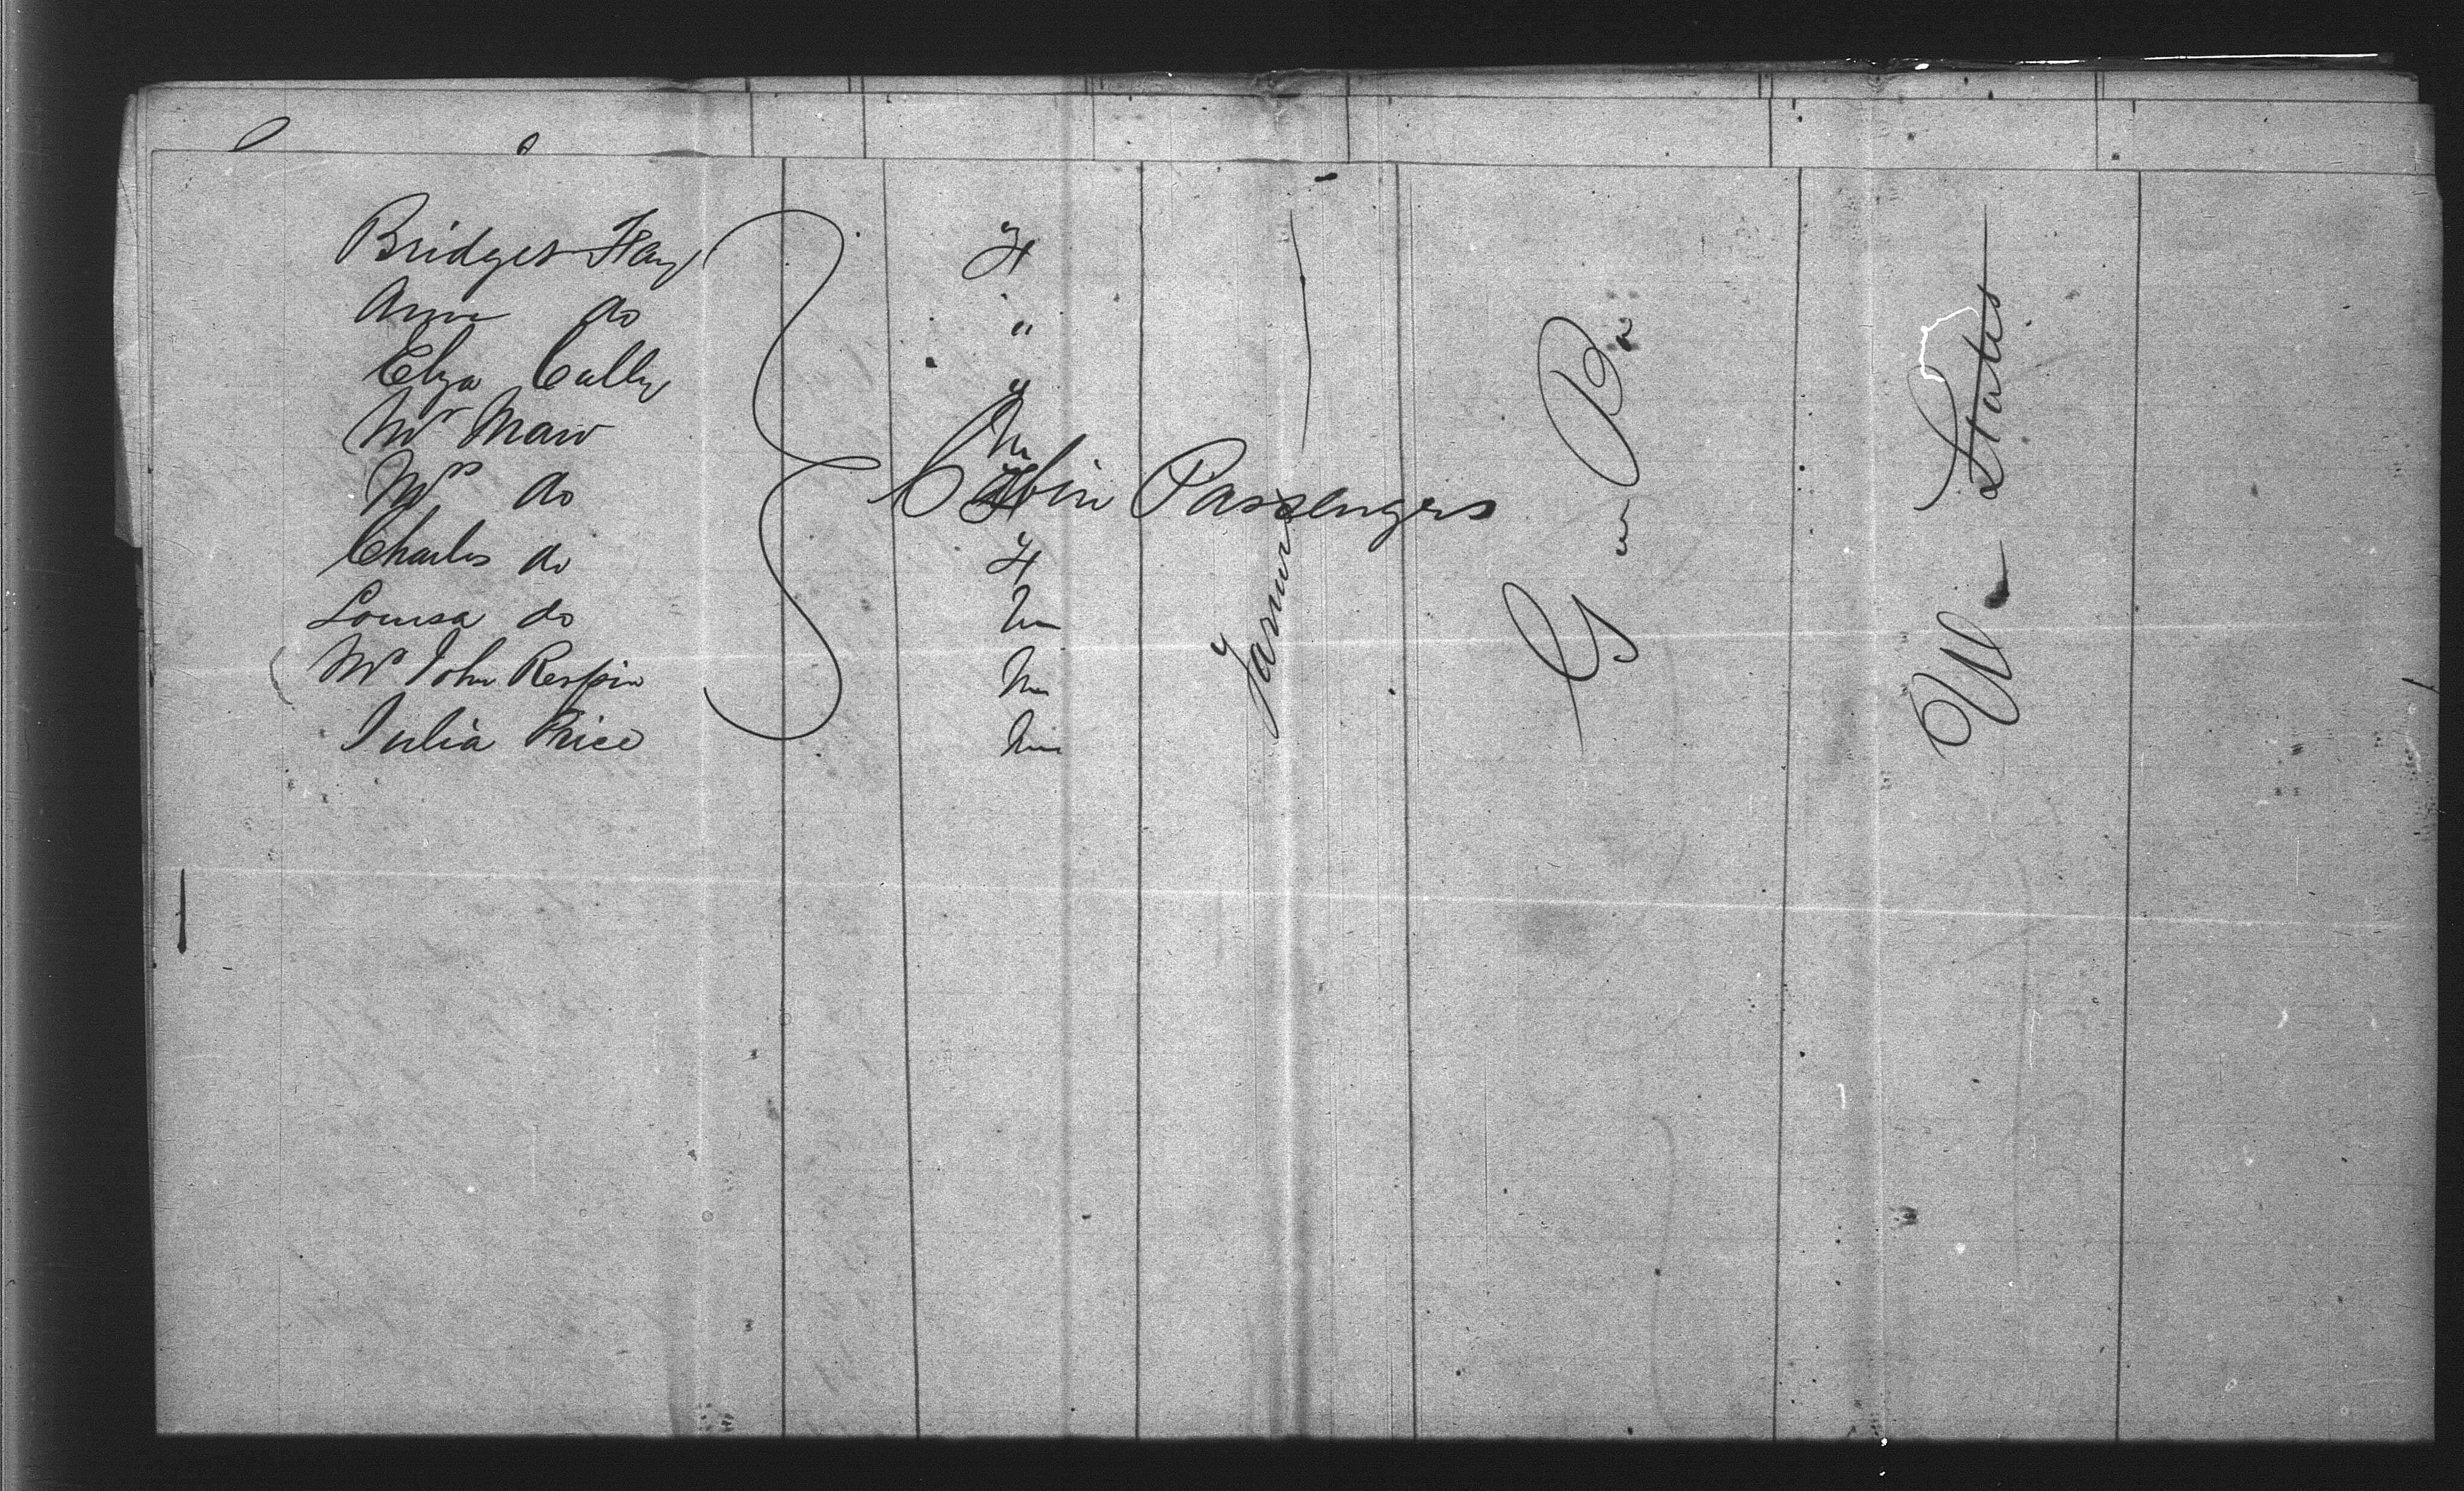 Bridget Hay F
Ann do "
Eliza Cally F
Mr Maw M
Mrs do F
Charles do F
Louisa do M
Mr John Respin M
Julia Price M
Cabin Passengers
Farmer
G Br
U States